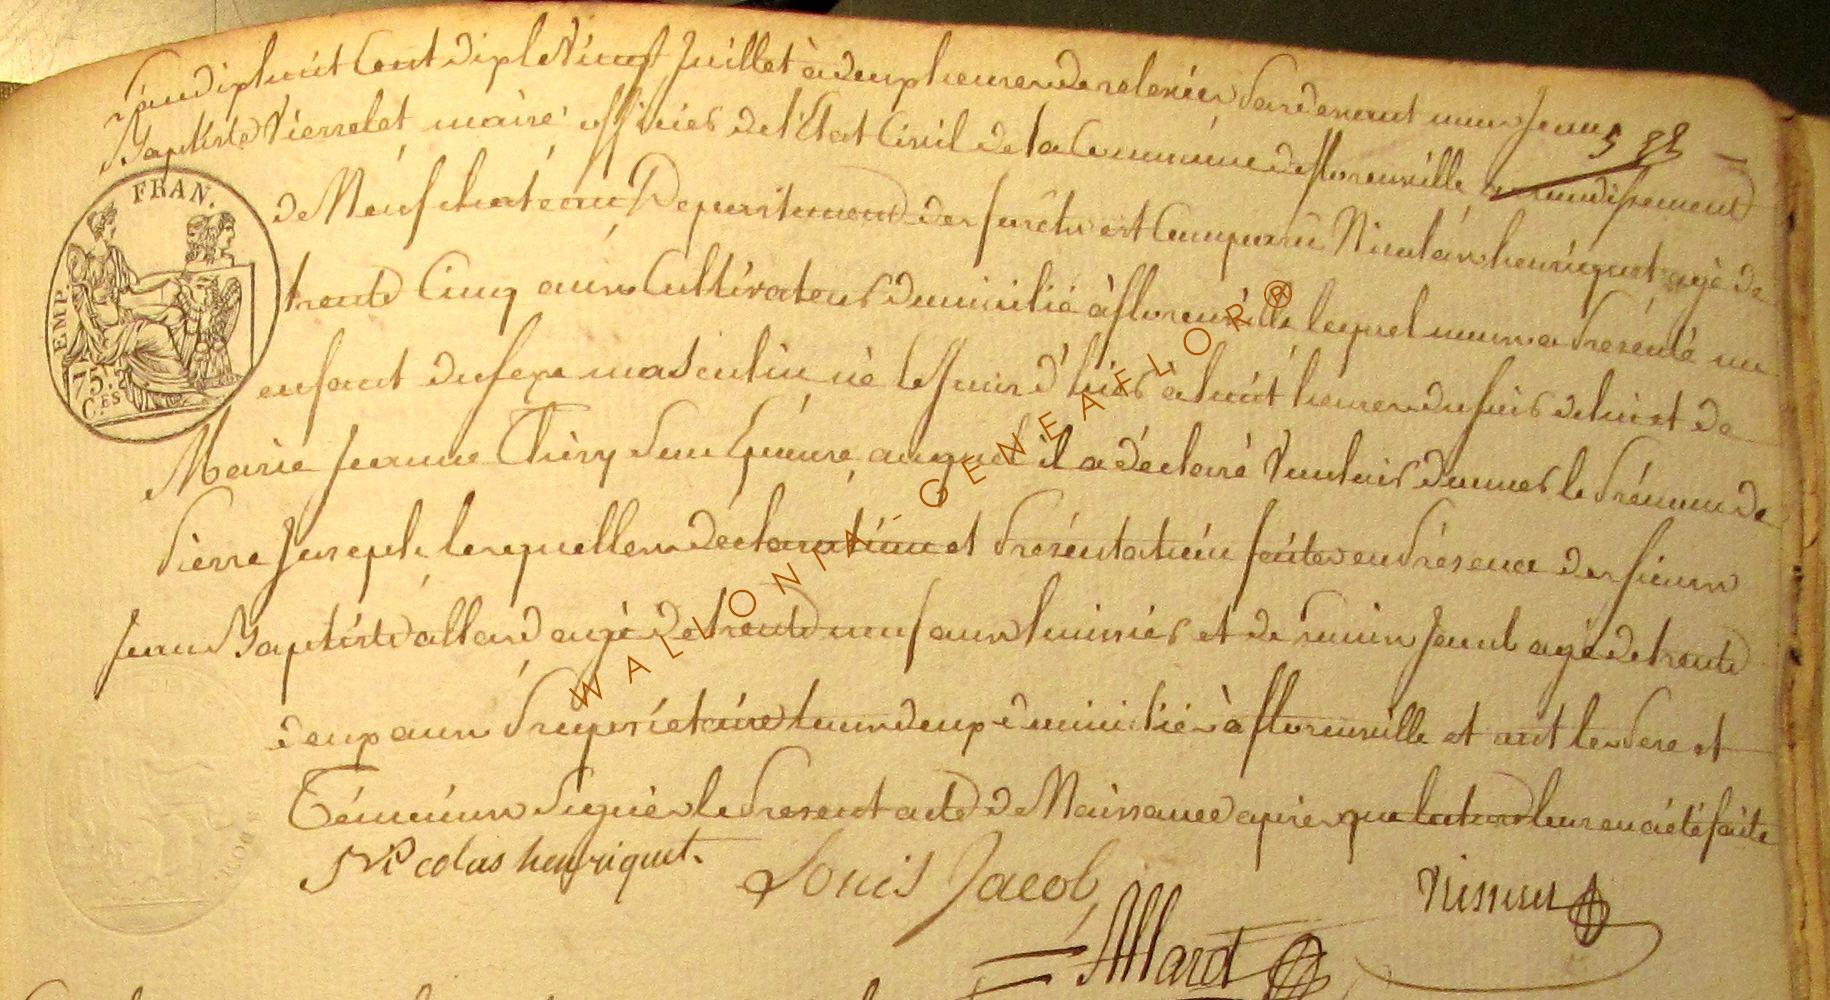 L'an dix huit Cent dix le Vingt Juillet à deux heures de relevée pardevant nous Jean
5
Baptiste Vierselet maire officier de l'Etat Civil de la Commune de florenville arrondissement
FRAN.
de Neufchateau Departement des forêts est Comparu Nicolas henriquet agé de
trente Cinq ans Cultivateur domicilié à florenville lequel nous a presenté un
EMP.
enfant du sexe masculin né le jour d'hier à huit heures du soir de lui et de
75.
C.ES
Marie Jeanne Thiry son Epouse auquel il a déclaré Vouloir donner le prénom de
pierre Joseph lesquelles déclaration et présentation faites en présence des sieurs
Jean Baptiste allard agé de trente neuf ans huissier et de Louis Jacob agé de trente
deux ans propriétaire tous deux domiciliés à florenville et ont les pere et
Témoins signés le present acte de Naissance après que lecture leur en a été faite
Nicolas henriquet.
Louis Jacob
Allard
WALLONIA - GENEAFLOR ®